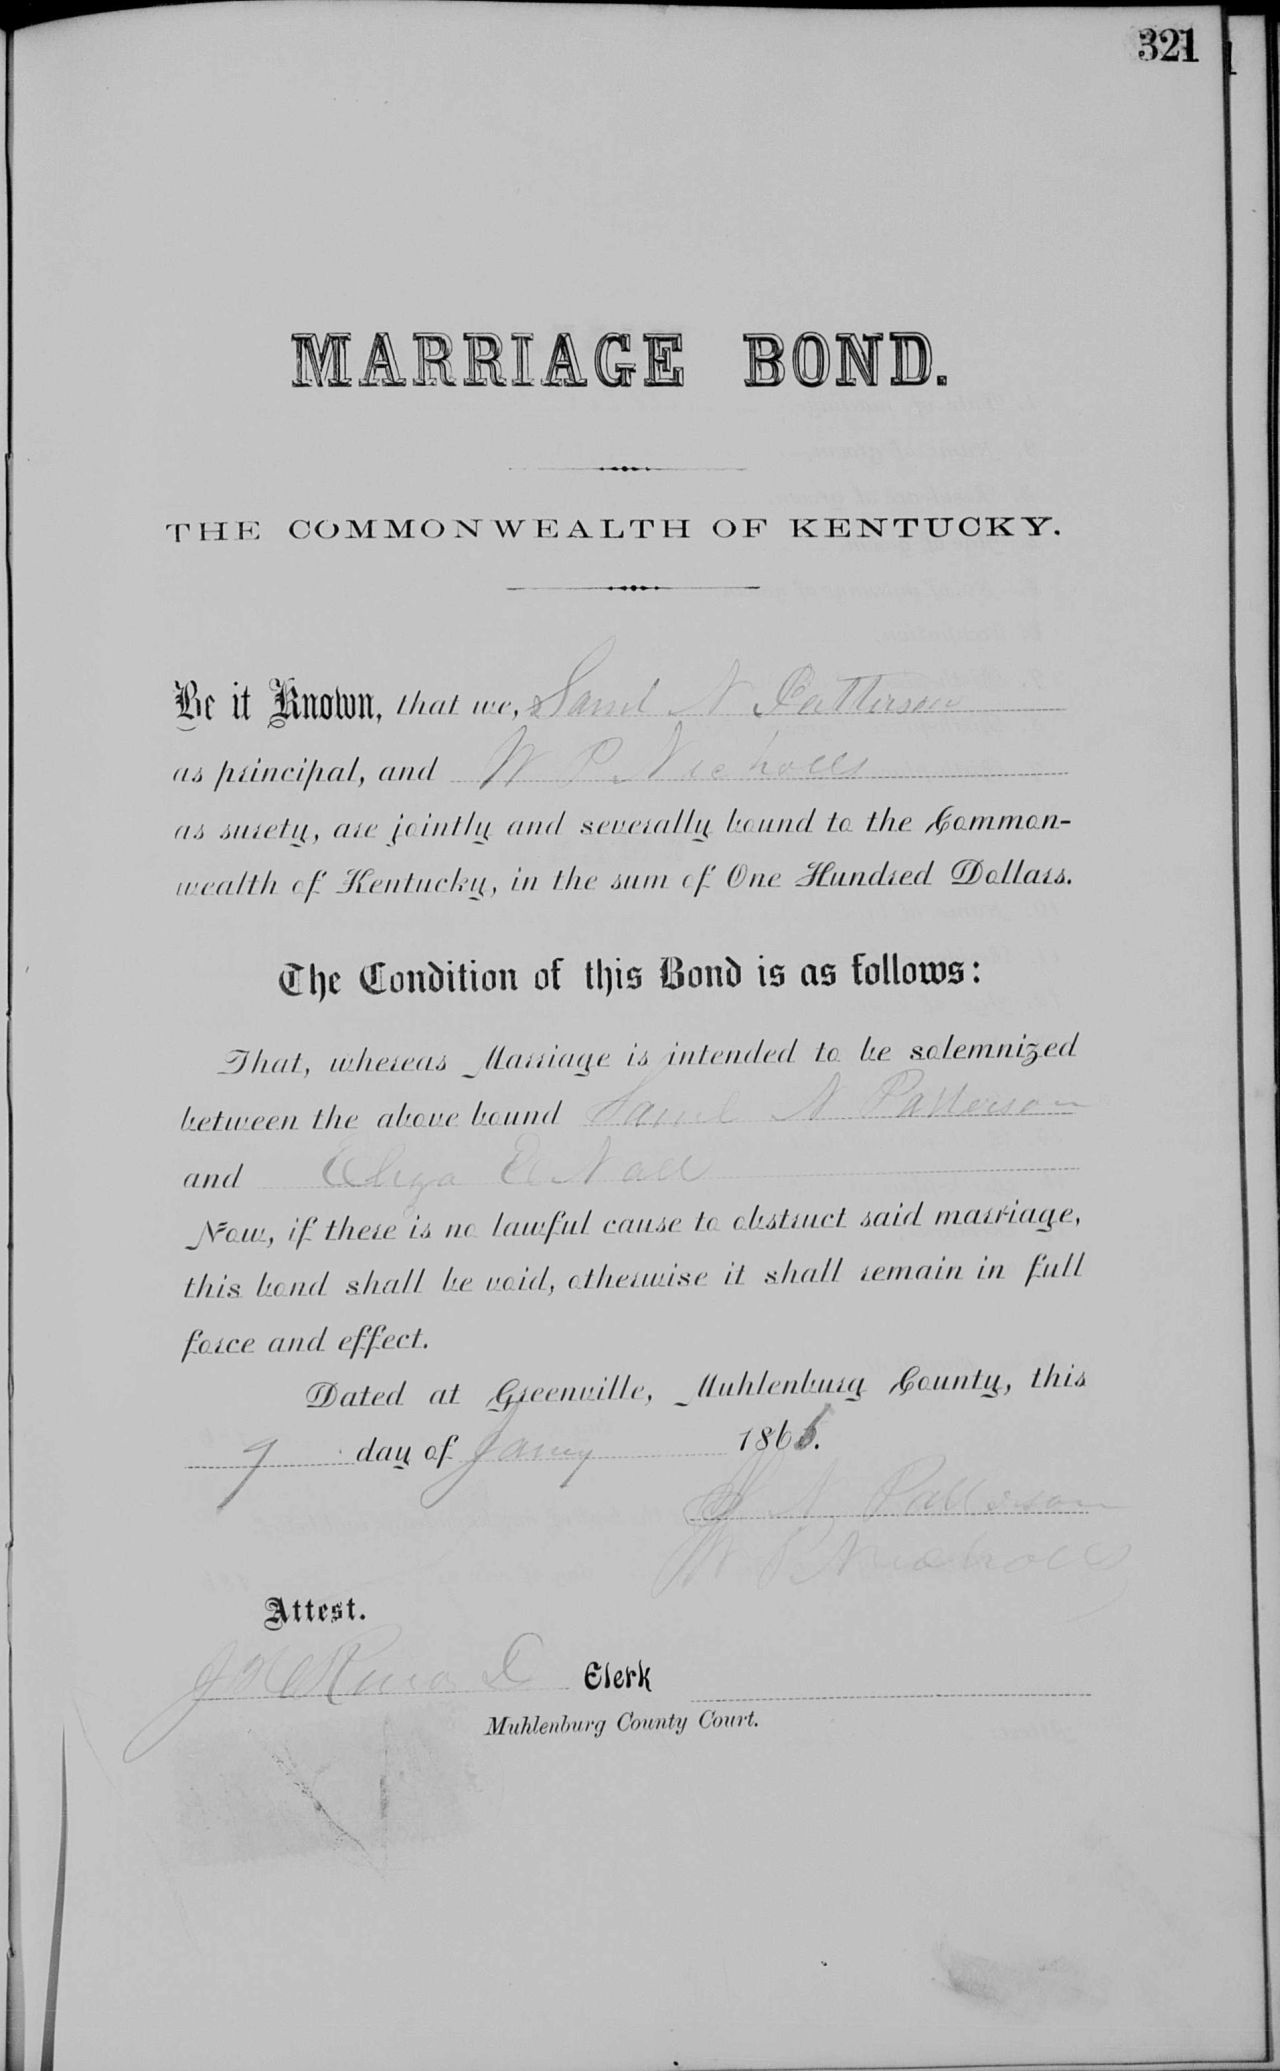 321
MARRIAGE BOND.
THE COMMONWEALTH OF KENTUCKY.
Be it Known, that we, Saml N Patterson
as principal, and W P Nicholls
as surety, are jointly and severally bound to the Common-
wealth of Kentucky, in the sum of One Hundred Dollars.
The Condition of this Bond is as follows:
That, whereas Marriage is intended to be solemnized
between the above bound Saml N Patterson
and Eliza E Nall
Now, if there is no lawful cause to obstruct said marriage,
this bond shall be void, otherwise it shall remain in full
force and effect.
Dated at Greenville, Muhlenburg County, this
9 day of Jany 1866.
S N Patterson
W P Nicholls
Attest.
Clerk
Muhlenburg County Court.